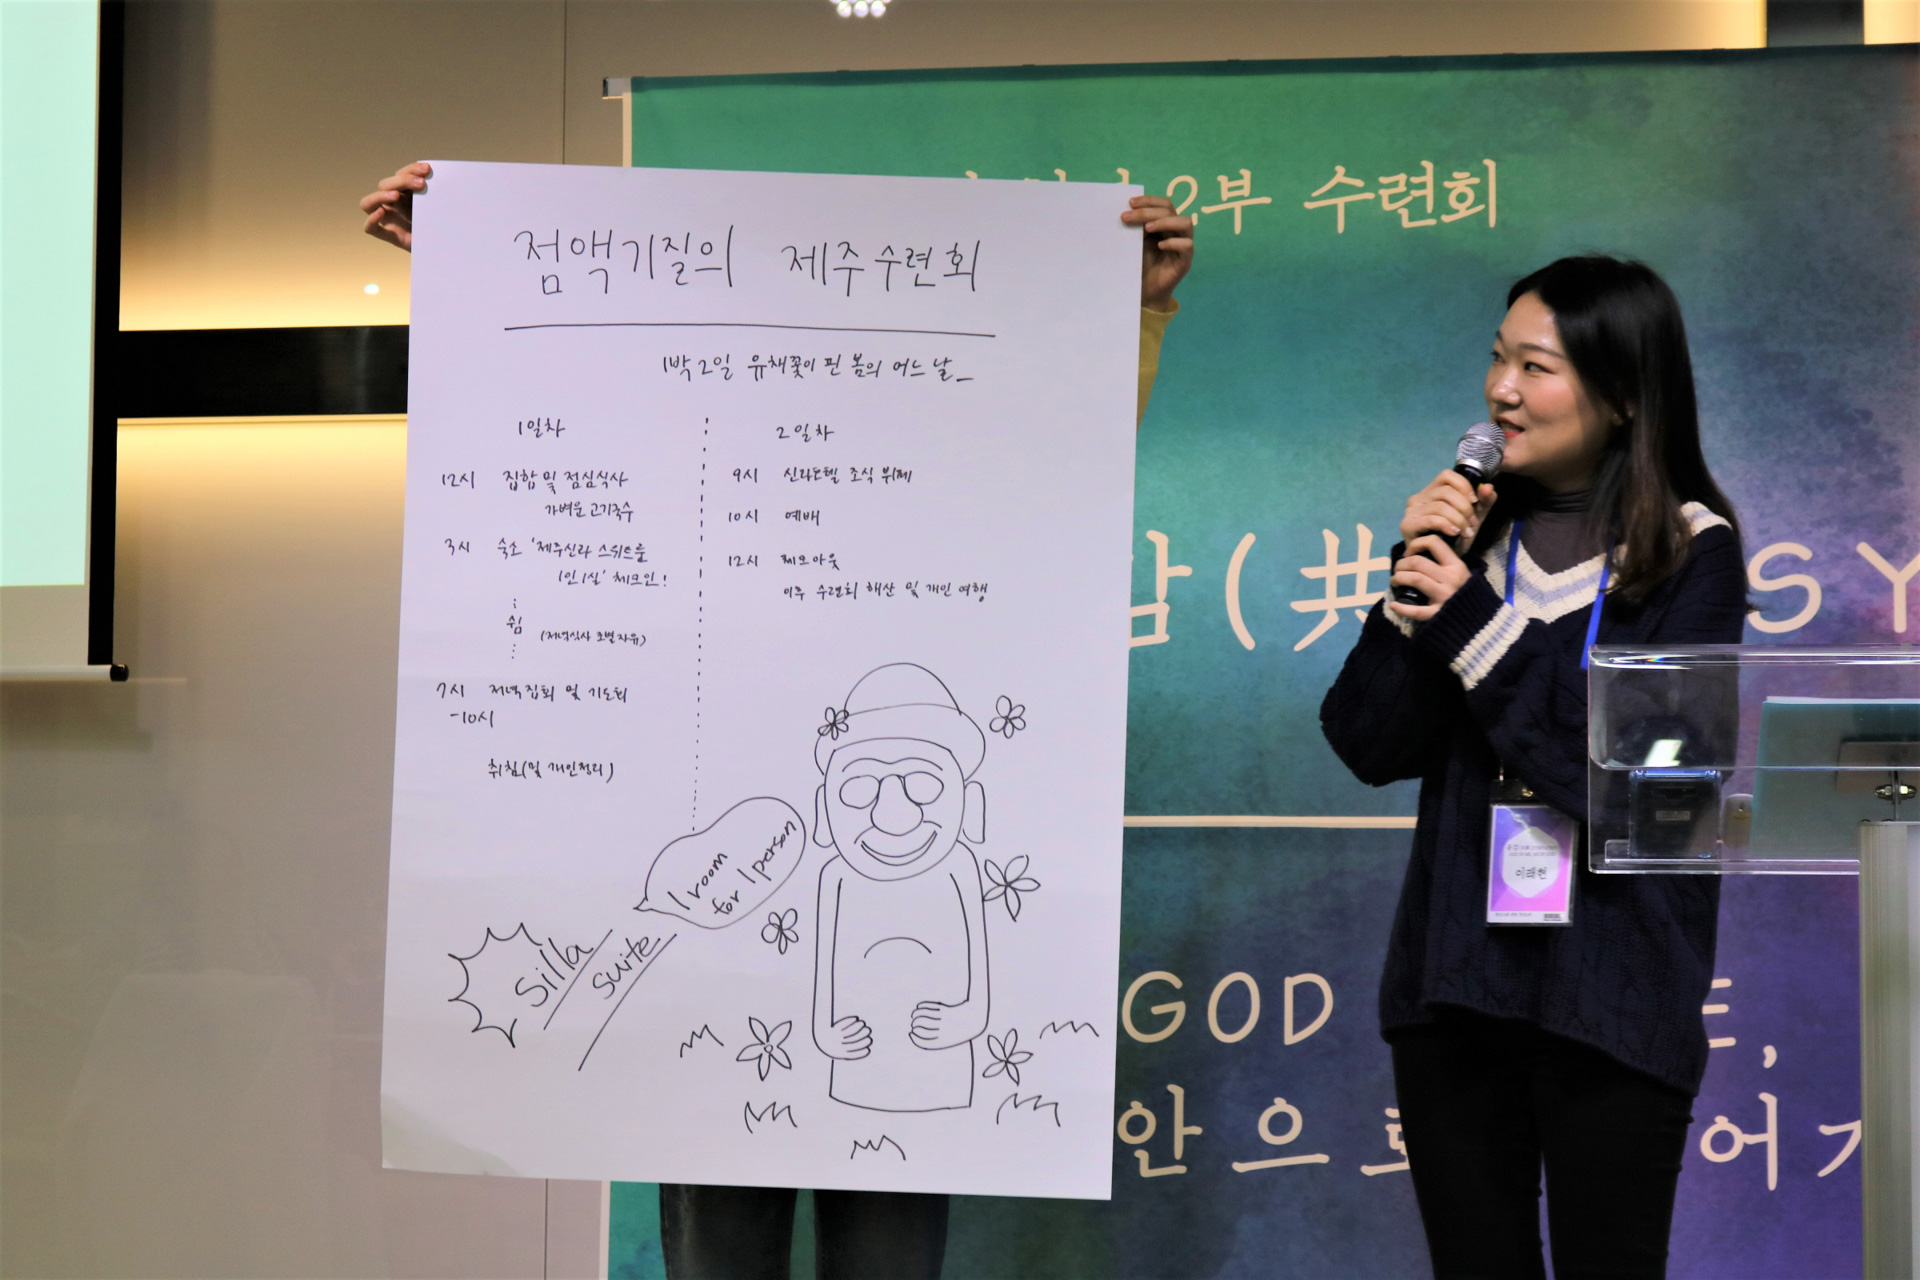 2부 수련회
점액기질의 제주수련회
1박2일 유채꽃이 핀 봄의 어느 날_
1일차
12시 집합 및 점심식사
가벼운 고기국수
3시 숙소 '제주신라 스위트룸
1인1실' 체크인!
쉼
(저녁식사 조별자유)
7시 저녁집회 및 기도회
-10시
취침(및 개인정리)
2일차
9시 신라호텔 조식 뷔페
10시 예배
12시 체크아웃
이후 수련회 해산 및 개인 여행
1 room
for 1 person
Silla
suite
감(共
SY
GOD
E,
안으로
어가
이래현